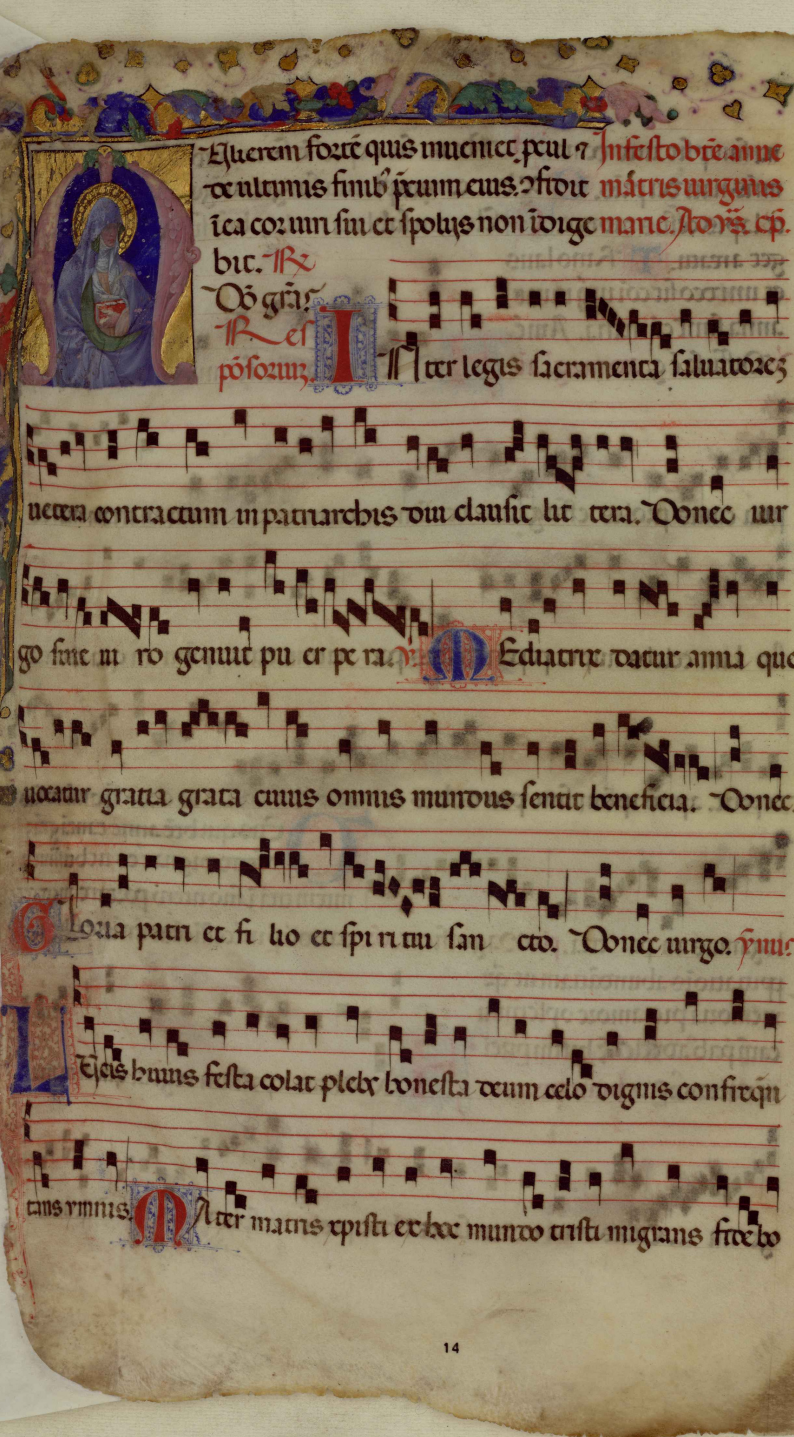 Mulierem fortē quis inueniet. p̄cul ⁊ Infesto btē anne
de ultimis finib; p̄cium eius. ꝯfidit mātris uirginis
ī ea cor uiri sui et spolijs non īdige marie. Ad vs̄. cp̄.
bit. R̄
Dō grās
Res
pōsoriuz. INter legis sacramenta saluatorez
uetera contractum in patriarchis diu clausit lit tera. Donec uir
go sine ui ro genuit pu er pe ra. V̄. MEdiatrix datur anna que
uocatur gratia grata cuius omnis mundus sentit beneficia. Donec
GLoria patri et fi lio et spi ri tui san cto. Donec uirgo. ymnus
LUcis huius festa colat plebs honesta deum celo dignis confreq̄n
tans ymnis. MAter matris xpisti ex hoc mundo tristi migrans fide bo
14